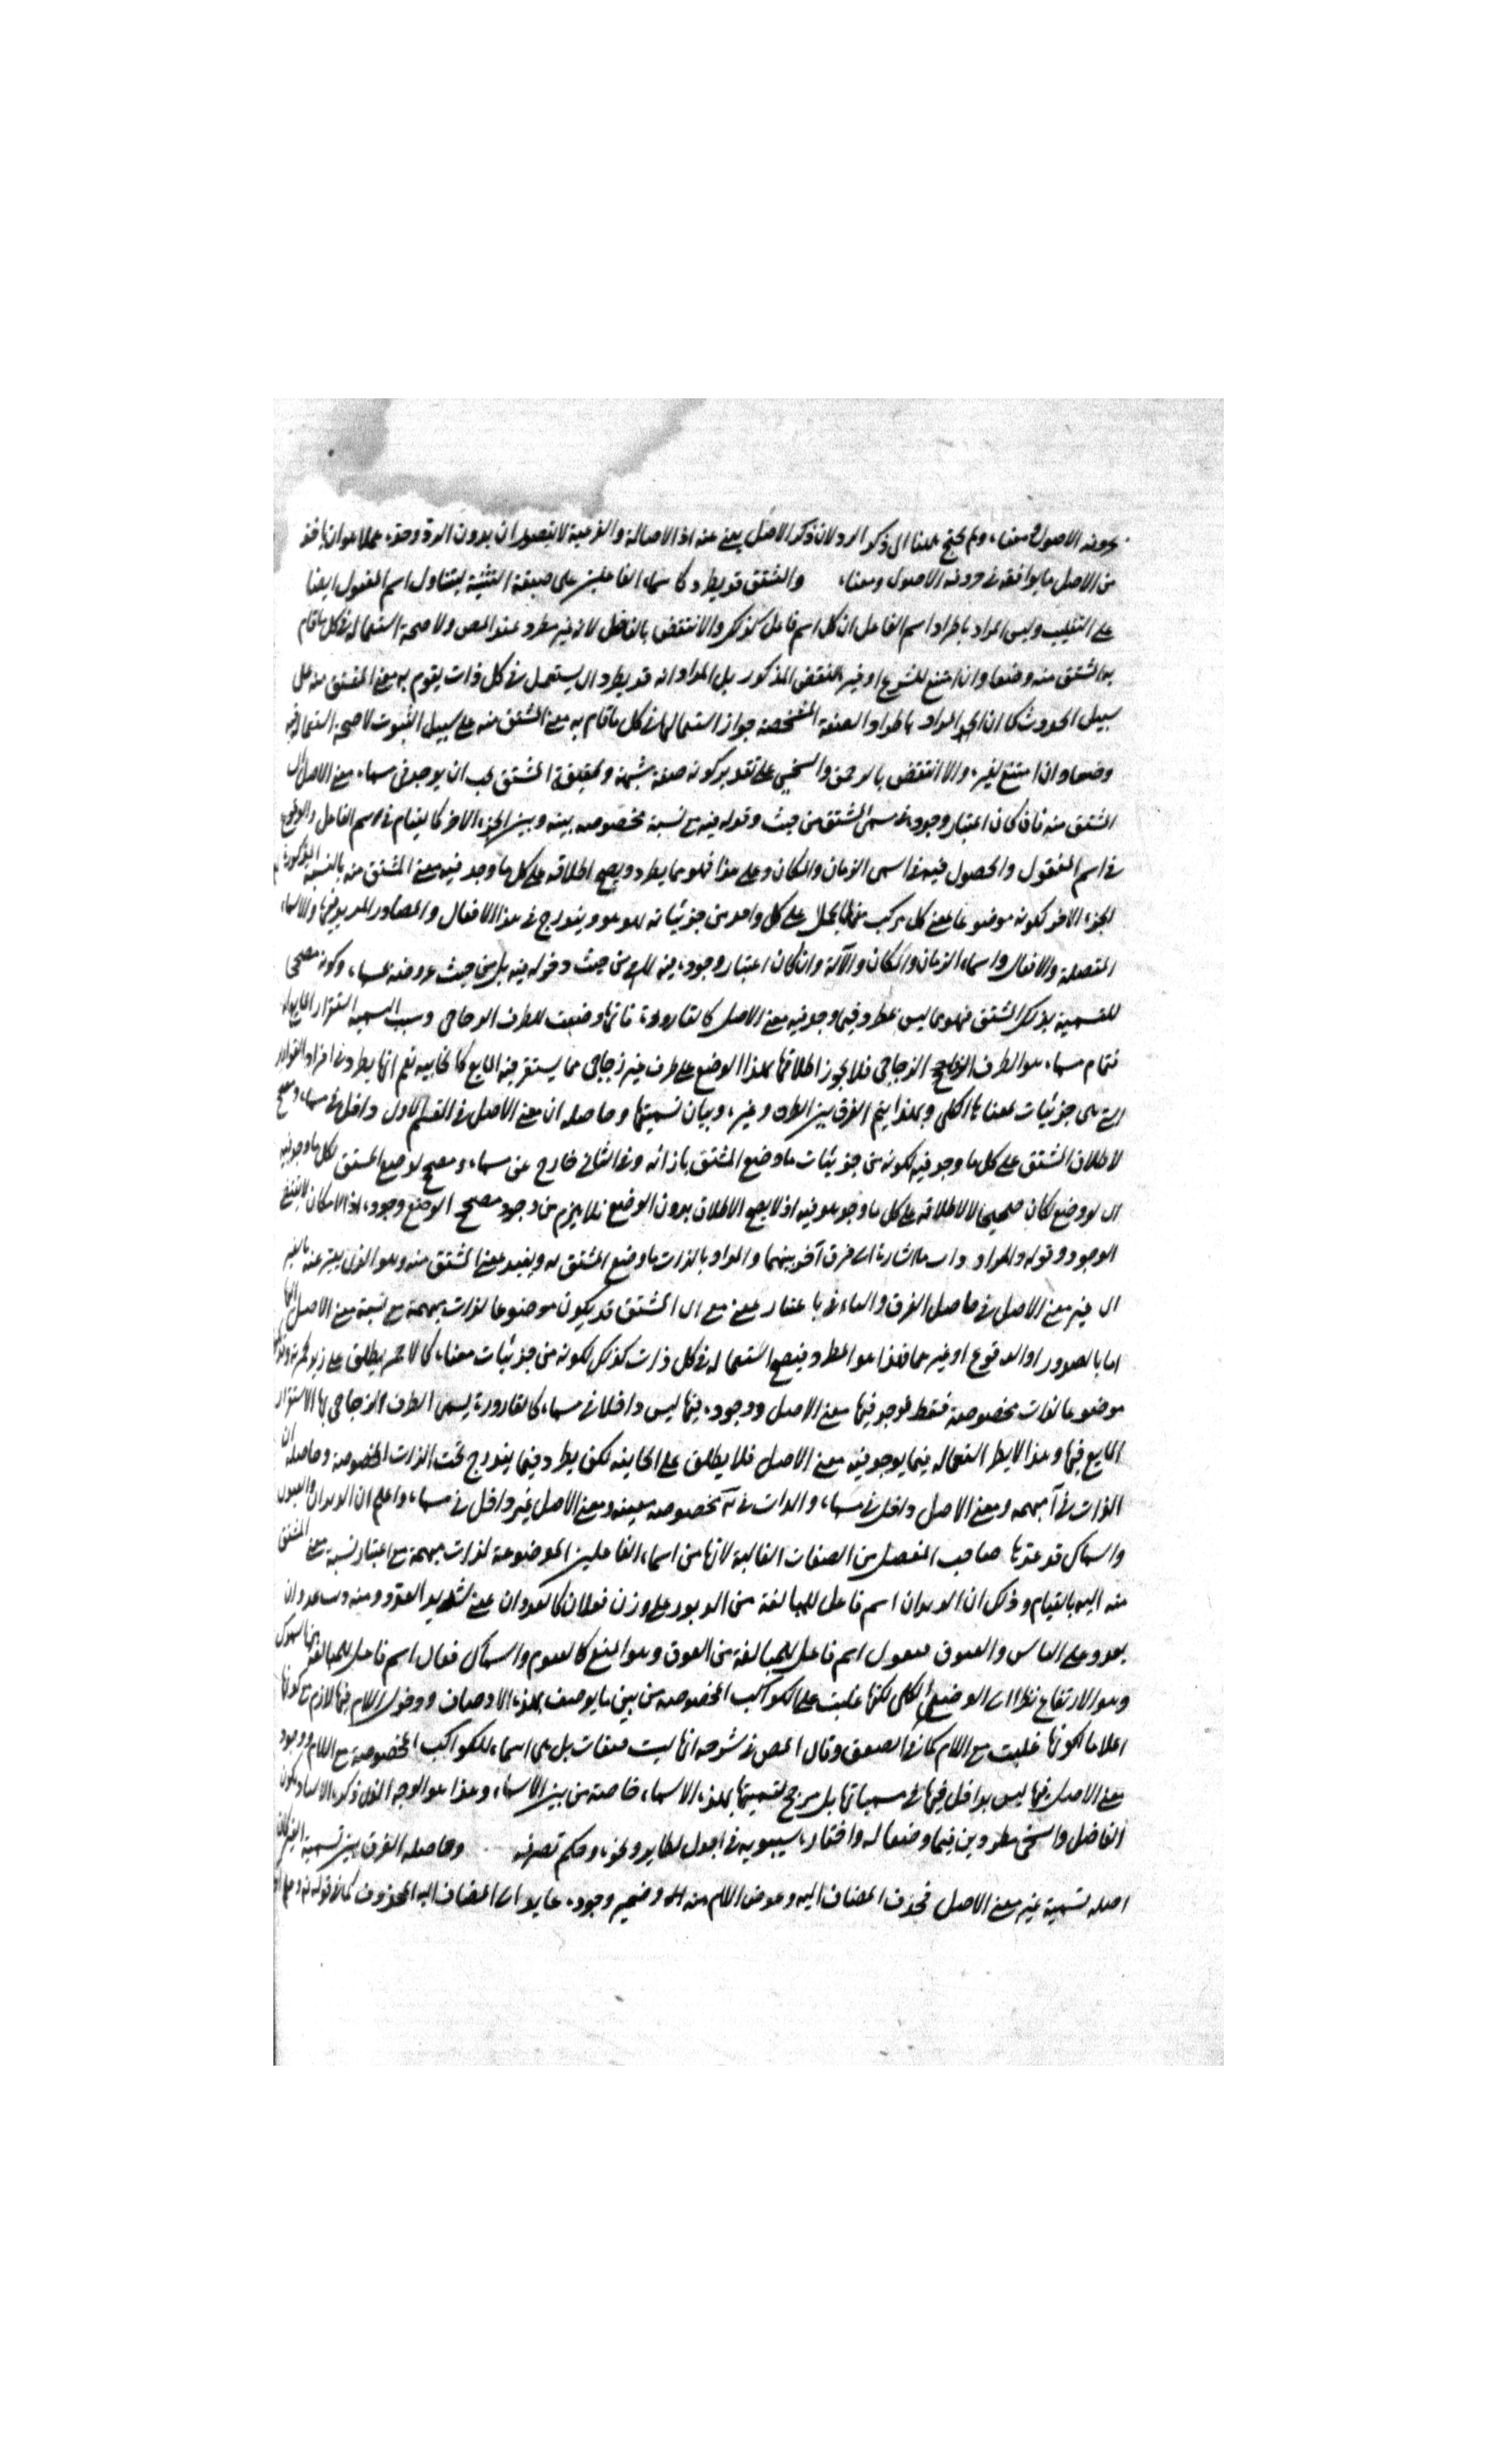 بحروفه الاصول ومعناه ولم يحتج ههنا الى ذكر الرد لان ذكر الاصل يغني عنه اذ الاصالة والفرعية لا يتصوران بدون الرد وحده عملا هو ان ياخذ
من الاصل ما يوافقه في حروفه الاصول ومعناه والمشتق قد يطرد كاسماء الفاعلين على صيغة التثنية ليتناول اسم المفعول ايضا
على التغليب وليس المراد باطراد اسم الفاعل ان كل اسم فاعل كذلك والا انتقض بالفاضل لانه غير مطرد عند المص ولا صحة استعماله في كل ما قام
به المشتق منه وضعا وان امتنع للشرع او غيره للنقض المذكور بل المراد انه قد يطرد اى يستعمل في كل ذات يقوم به معنى المشتق منه على
سبيل الحدوث كما ان المراد باطراد الصفة المشبهة جواز استعمالها في كل ما قام به معنى المشتق منه على سبيل الثبوت لا صحة استعمالها فيه
وضعا وان امتنع لغيره والا انتقض بالرحمن والسخي على تقدير كونه صفة مشبهة وتحقيقه ان المشتق يجب ان يوجد في مسماه معنى الاصل اى
المشتق منه فاذا كان اعتبار وجوده في مسمى المشتق من حيث دخوله فيه مع نسبة مخصوصة بينه وبين الجزء الاخر كالقيام في اسم الفاعل والوقوع
في اسم المفعول والحصول فيه في اسمى الزمان والمكان وعلى هذا فهو مما يطرد ويصح اطلاقه على كل ما وجد فيه معنى المشتق منه بالنسبة المذكورة
الجزء الاخر لكونه موضوعا لمعنى كلى مركب منهما يحمل على كل واحد من جزئياته هو هو ويندرج في هذا الافعال والمصادر المزيد فيها والاسماء
المتصلة والافعال واسماء الزمان والمكان والآلة وان كان اعتبار وجوده فيه لا من حيث دخوله فيه بل من حيث عروضه لمسماه وكونه مصححا
للتسمية بذلك المشتق فهو مما ليس بمطرد فيما وجد فيه معنى الاصل كالقارورة فانها وضعت للظرف الزجاجى وسبب التسمية استقرار المايع فيه
فتمام مسماه هو الظرف الزجاجى فلا يجوز اطلاقها بهذا الوضع على ظرف غير زجاجى مما يستقر فيه المايع كالخابية نعم انها يطرد في افراد القوارير
التى هى جزئيات لمعناها الكلى وبهذا يتم الفرق بين المطرد وغيره وبيان تسميتها وحاصله ان معنى الاصل في القسم الاول داخل في مسماه ومصحح
لاطلاق المشتق على كل ما وجد فيه لكونه من جزئيات ما وضع المشتق بازائه وفي الثاني خارج عن مسماه ومصحح لوضع المشتق لكل ما وجد فيه
اى لو وضع لكان صحيحا لا لاطلاقه على كل ما وجد هو فيه اذ لا يصح الاطلاق بدون الوضع فلا يلزم من وجود مصحح الوضع وجوده اذ الامكان لا يقتضي
الوجود وقوله والمراد ذات ما اشارة الى فرق آخر بينهما والمراد بالذات ما وضع المشتق له ويفيد معنى المشتق منه وهو الذى يعبر عنه بالغير
اى غير معنى الاصل في حاصل الفرق والباء في باعتبار بمعنى مع اى المشتق قد يكون موضوعا لذات مبهمة مع نسبة معنى الاصل اليها
اما بالصدور او الوقوع او غيرهما فهذا هو المطرد فيصح استعماله في كل ذات كذلك لكونه من جزئيات معناه كالاحمر يطلق على
موضوعا لذات مخصوصة فقط يوجد فيها معنى الاصل ووجوده فيها ليس داخلا في مسماه كالقارورة يسمى الظرف الزجاجى بها لاستقرار
المايع فيها وهذا لا يطرد استعماله فيما يوجد فيه معنى الاصل فلا يطلق على الخابية لكن يطرد فيما يندرج تحت الذات المخصوصة وحاصله ان
الذات في آ مبهمة ومعنى الاصل داخل في مسماه والذات في ب مخصوصة معينة ومعنى الاصل غير داخل في مسماه واعلم ان الدبران والعيوق
والسماك قد عدها صاحب المفصل من الصفات الغالبة لانها من اسماء الفاعلين الموضوعة لذات مبهمة مع اعتبار نسبة معنى المشتق
منه اليه بالقيام وذلك ان الدبران اسم فاعل للمبالغة من الدبور على وزن فعلان كالعدوان بمعنى شديد العدو ومنه ذئب عدوان
يعدو على الناس والعيوق فيعول اسم فاعل للمبالغة من العوق وهو المنع كالقيوم والسماك فعال اسم فاعل للمبالغة من السموك
وهو الارتفاع نظرا الى الوضع الكلى لكنها غلبت على الكواكب المخصوصة من بين ما يوصف بهذه الاوصاف ودخول اللام فيها لازم مع كونها
اعلاما لكونها غلبت مع اللام كما في الصعق وقال المص في شرحه انها ليست صفات بل هى اسماء للكواكب المخصوصة مع اللام ووجود
معنى الاصل فيها ليس بداخل فيها في مسمياتها بل مرجح لتسميتها بهذه الاسماء خاصة من بين الاسماء وهذا هو الوجه الذى ذكره الاستاد ويكون
الفاضل والسخى مطردين فيما وضعا له وافتقار سيبويه في اجدل لطاير ونحوه وحكم تصرفه وحاصله الفرق بين تسمية الغير كان
اصله تسمية غير معنى الاصل فحذف المضاف اليه وعوض اللام منه وضمير وجوده عايد الى المضاف اليه المحذوف كما في قوله